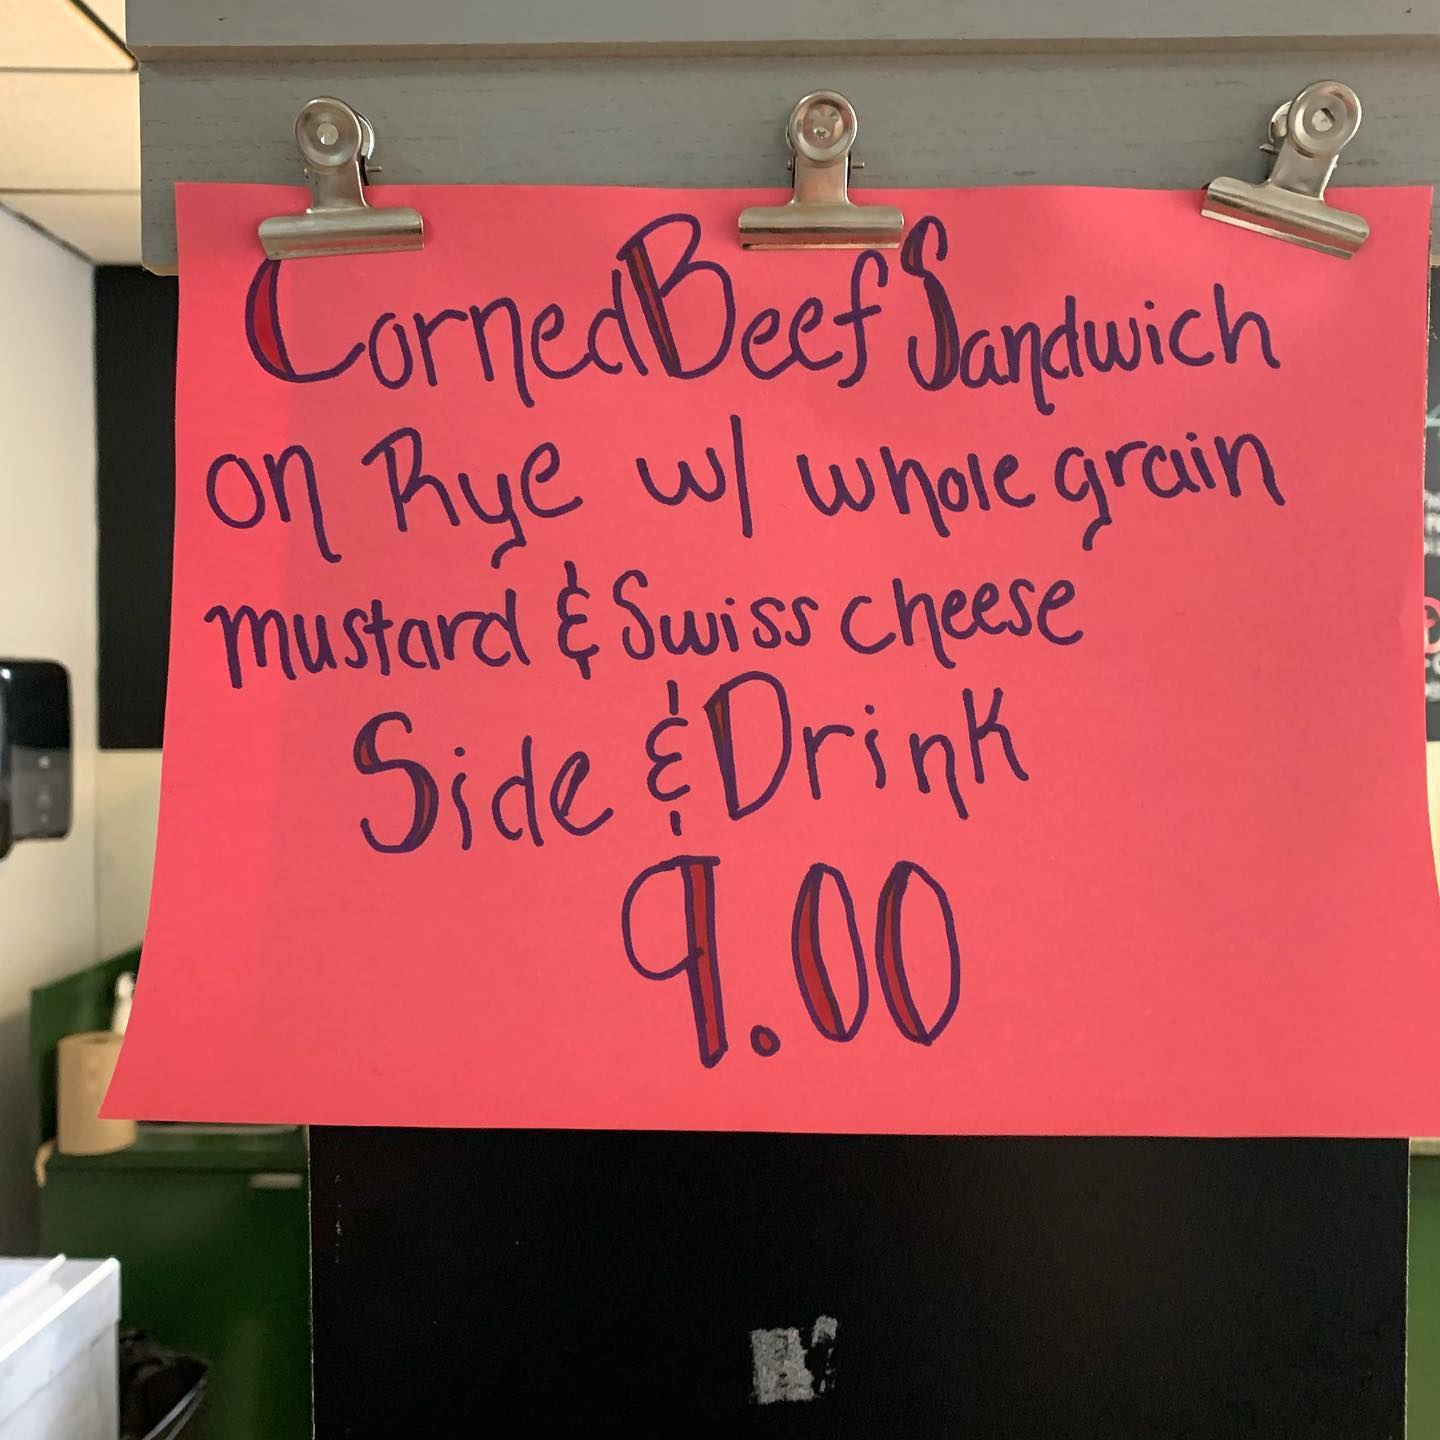 Corned Beef Sandwich
on Rye w/ whole grain
mustard & Swiss cheese
Side & Drink
9.00